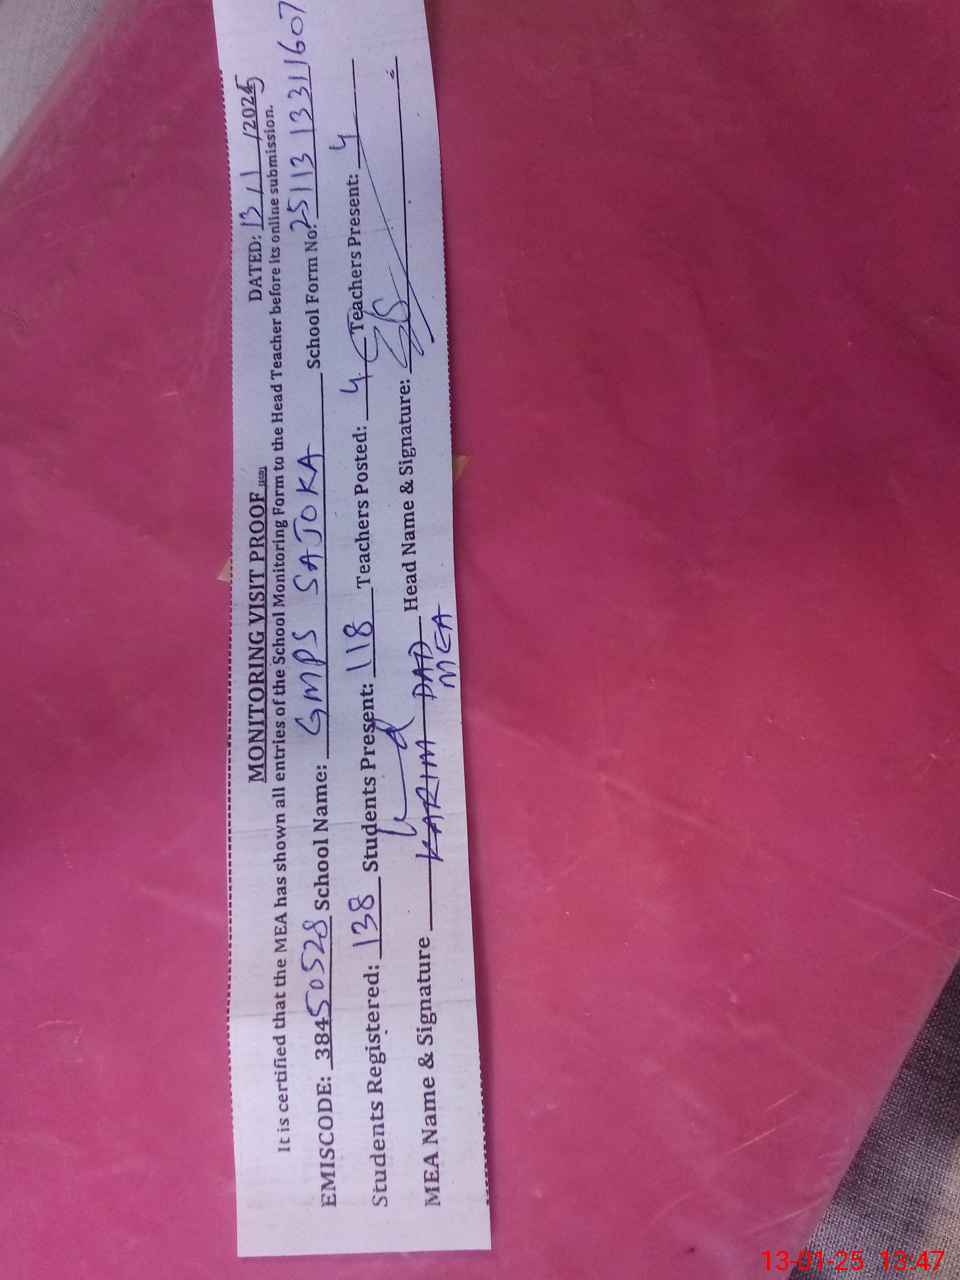 MONITORING VISIT PROOF DATED: 13/1/2025
It is certified that the MEA has shown all entries of the School Monitoring Form to the Head Teacher before its online submission.
EMISCODE: 38450528 School Name: GMPS SAJOKA School Form No: 25113 13311607
Students Registered: 138 Students Present: 118 Teachers Posted: 4 Teachers Present: 4
MEA Name & Signature KARIM DAD Head Name & Signature:
MEA
13-01-25 13:47